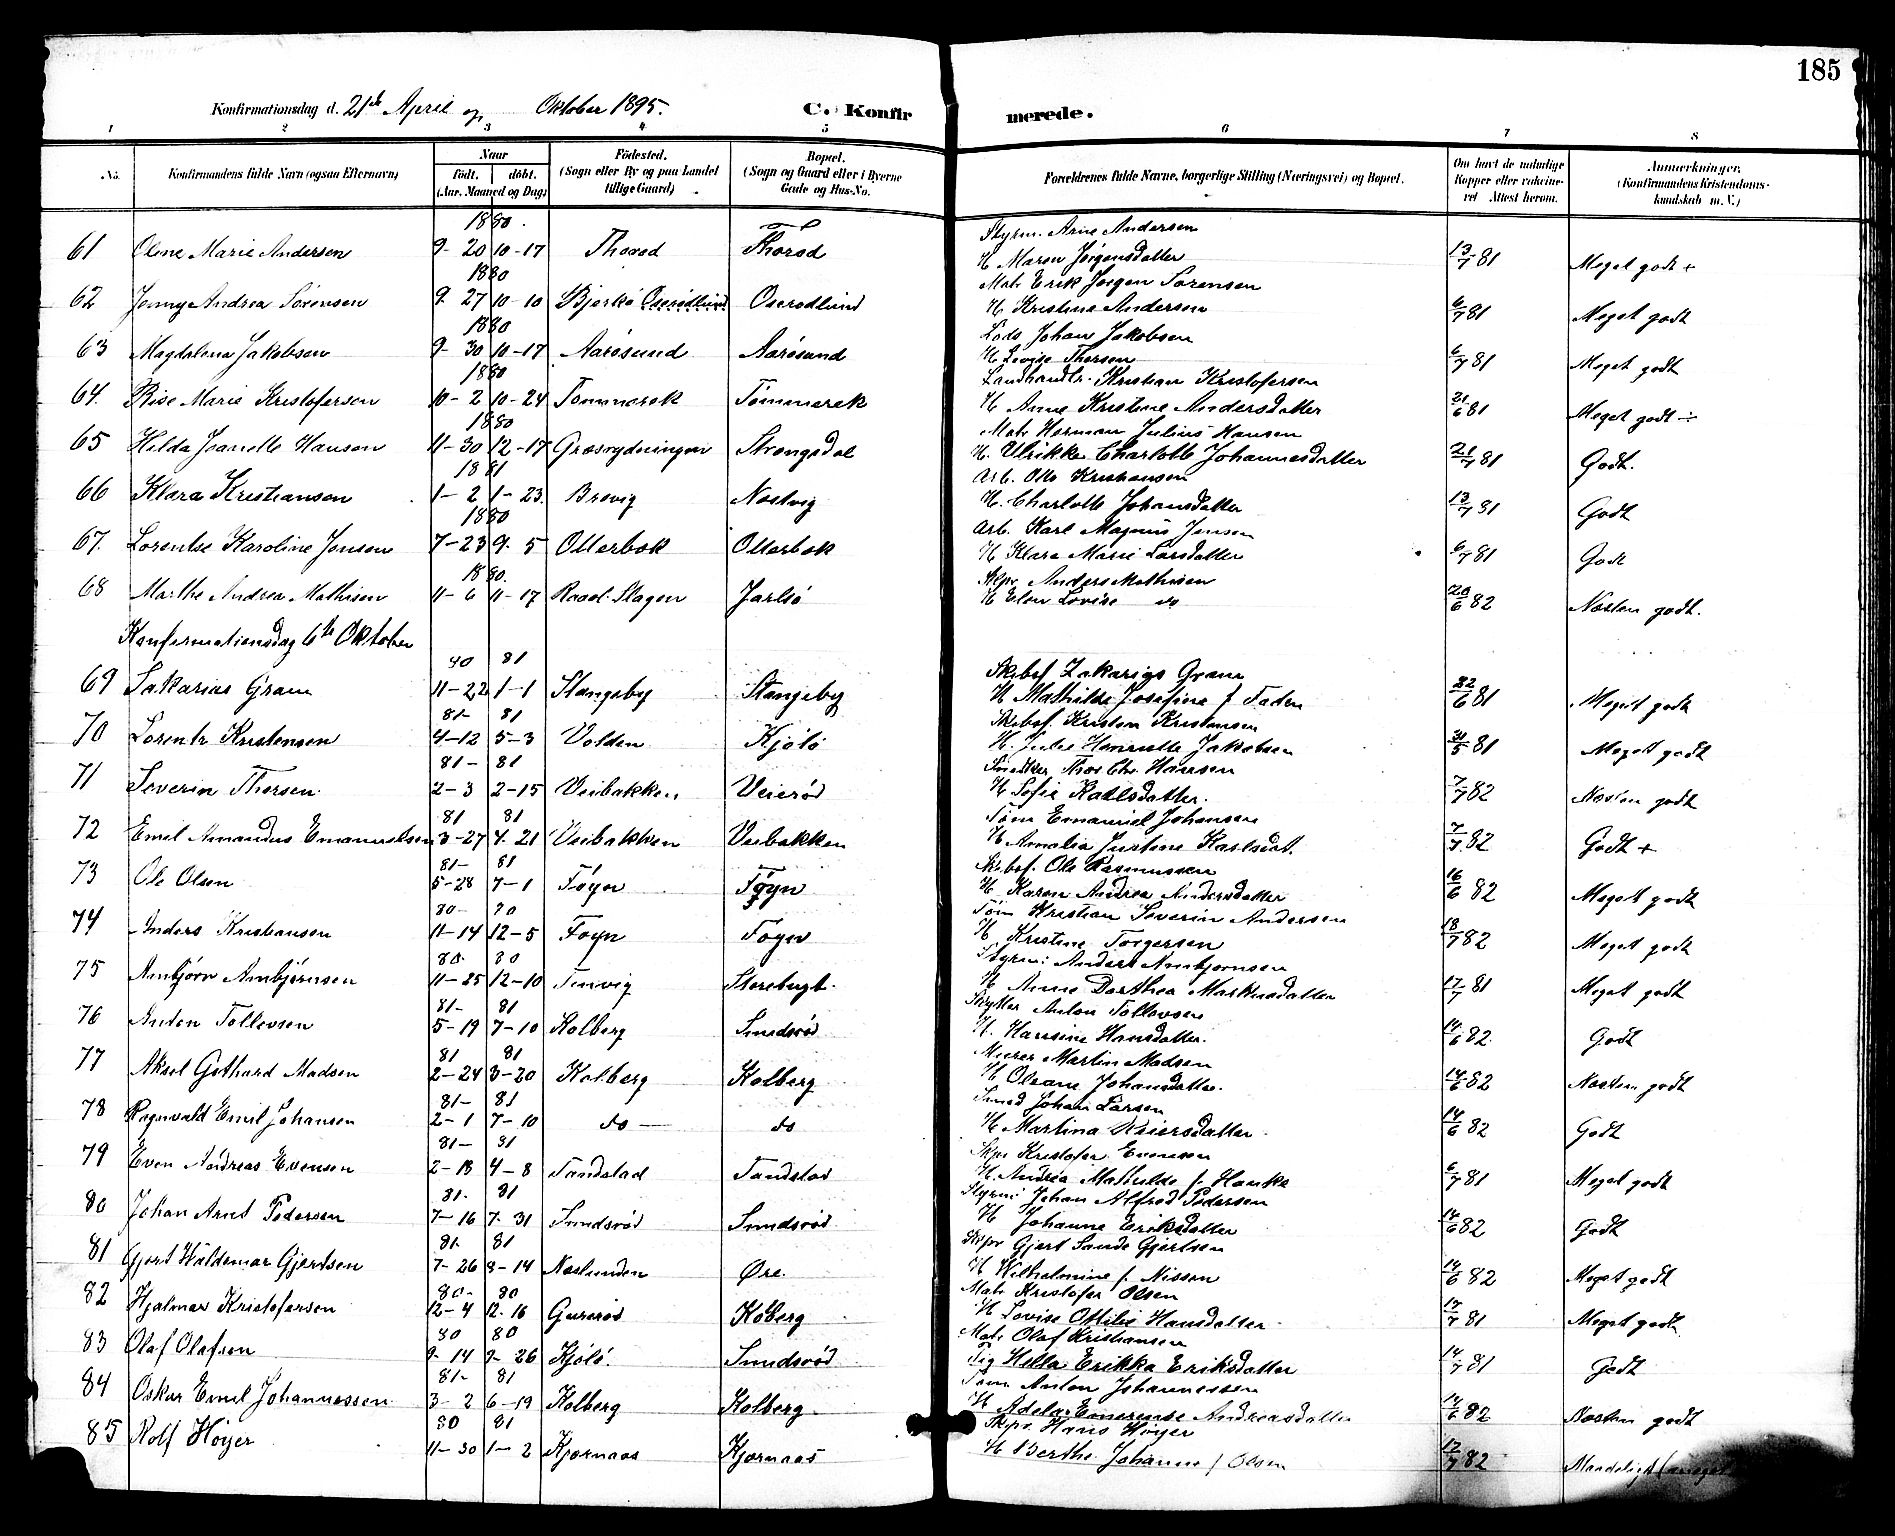 185
Konfirmationsdag d. 21de April og Oktober 1895. C. Konfirmerede.
1 2 3 4 5 6 7 8
No. Konfirmandens fulde Navn (ogsaa Efternavn) Naar født. døbt. (Aar, Maaned og Dag) Fødested. (Sogn eller By og paa Landet tillige Gaard) Bopæl. (Sogn og Gaard eller i Byerne Gade og Hus-No. Forældrenes fulde Navne, borgerlige Stilling (Næringsvei) og Bopæl. Om havt de naturlige Kopper eller vakcineret Attest herom. Anmærkninger. (Konfirmandens Kristendomskundskab m. V.)
1880. Styrm. Arne Andersen
61 Oline Marie Andersen 9-20 10-17 Thorød Thorød H Maren Jørgensdatter 13/7 81 Meget godt +
1880 Matr Erik Jørgen Sørensen
62 Jenny Andrea Sørensen 9-27 10-10 Bjerkø Oserødlund Oserødlund H Kristine Andersen 6/7 81 Meget godt
1880 Lods Johan Jakobsen
63 Magdalena Jakobsen 9-30 10-17 Aarøsund Aarøsund H Lovise Thorsen 6/7 81 Meget godt
1880 Landhandlr. Kristian Kristofersen
64. Rise Marie Kristofersen 10-2 10-24 Tømmerek Tømmerek H Anne Kristine Andersdatter 21/6 81 Meget godt ÷
1880 Matr Herman Julius Hansen
65 Hilda Jeanette Hansen 11-30 12-17 Græsrydningen Strengsdal H. Ulrikke Charlotte Johannesdatter 21/7 81 Godt.
1881 Arb. Otto Kristiansen
66 Klara Kristiansen 1-2 1-23. Brevig Nøstvig H. Charlotte Johansdatter 13/7 81 Godt
1880 Arb. Karl Magnus Jensen
67. Lorentse Karoline Jensen 7-23 9-5 Ollerbæk Ollerbæk H Klara Marie Larsdatter 6/7 81 Godt
1880. Skpr Anders Mathisen
68 Marthe Andrea Mathisen 11-6 11-17 Raael. Slagen Jarlsø H Elen Lovise do 20/6 82 Næsten godt.
Konfirmationsdag 6te Oktober
80 81 Skibsf Zakarias Gram
69 Sakarias Gram 11-22 1-1 Stangeby Stangeby H Mathilde Josefine f Faden 22/6 81 Meget godt
81- 81 Skibsf. Kristen Kristensen
70 Lorentz Kristensen 4-12 5-3 Volden Kjølø H. Julie Henriette Jakobsen 31/5 81 Meget godt
81- 81 Snedker Thor Chr. Hansen
71 Severin Thorsen. 2-3 2-15 Veibakken Veierød H Sofie Karlsdatter. 7/7 82 Næsten godt
81 81 Tøm Emanuel Johansen
72 Emil Amandus Emanuelsen 3-27 4-21 Veibakken Veibakken H Amalia Justine Karlsdat. 7/7 82 Godt +
81- 81 Skibsf. Ole Rasmussen
73 Ole Olsen 5-28 7-1 Føyn Føyn H Karen Andrea Andersdatter 16/6 82 Meget godt
80- 80 Tøm Kristian Severin Andersen
74 Anders Kristiansen 11-14 12-5 Føyn Føyn H Kristine Torgersen 18/7 82 Meget godt
80- 80 Styrm: Anders Ambjørnsen
75 Ambjørn Ambjørnsen 11-25 12-10 Tenvig Storebugt. H Anne Dorthea Markusdatter 17/7 81 Meget godt
81- 81 Skytter Anton Tollevsen
76 Anton Tollevsen 5-19 7-10 Kolberg Sundsrød H. Hansine Hansdatter. 14/6 82. Godt
81 81 Murer Martin Madsen
77 Aksel Gothard Madsen 2-24 3-20 Kolberg Kolberg H Oleane Johansdatter. 14/6 82 Næsten godt
81- 81 Smed Johan Larsen
78 Ragnvald Emil Johansen 2-1 7-10 do do H Martina Reiersdatter. 14/6 82 Godt
81- 81 Skpr Kristofer Evensen
79 Even Andreas Evensen 2-18 4-8 Sandstad Sandstad H. Andrea Mathilde f. Hauke 6/7 81 Meget godt
81- 81 Styrm: Johan Alfred Pedersen
80 Johan Arnt Pedersen 7-16 7-31 Sundsrød Sundsrød H Johanne Eriksdatter 14/6 82 Godt
81- 81 Skpr Gjert Sande Gjertsen
81 Gjert Waldemar Gjertsen 7-26 8-14 Næslunden Øre. H Wilhelmine f. Nissen 14/6 82 Meget godt
80- 80 Matr Kristofer Olsen
82 Hjalmar Kristofersen 12-4 12-16 Gurerød Kolberg H Lovise Ottilie Hansdatter. 17/7 81 Meget godt
80 80 Matr Olaf Kristiansen
83 Olaf Olafsen 9-14 9-26 Kjølø. Sundsrød Pig Hella Erikka Eriksdatter 14/7 81 Godt
81- 81 Tøm. Anton Johannessen
84 Oskar Emil Johannessen 3-2 6-19 Kolberg Kolberg H Adela Emerense Andreasdatter 14/6 82 Næsten godt
80 81 Skpr. Hans Høyer
85 Rolf Høyer 11-30 1-2 Kjørnaas Kjørnaas H Berthe Johanne f Olsen 12/7 82 Maadeligt